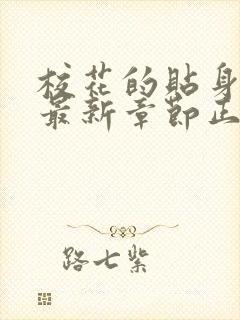 校花的貼身
最新章節正
路七紫